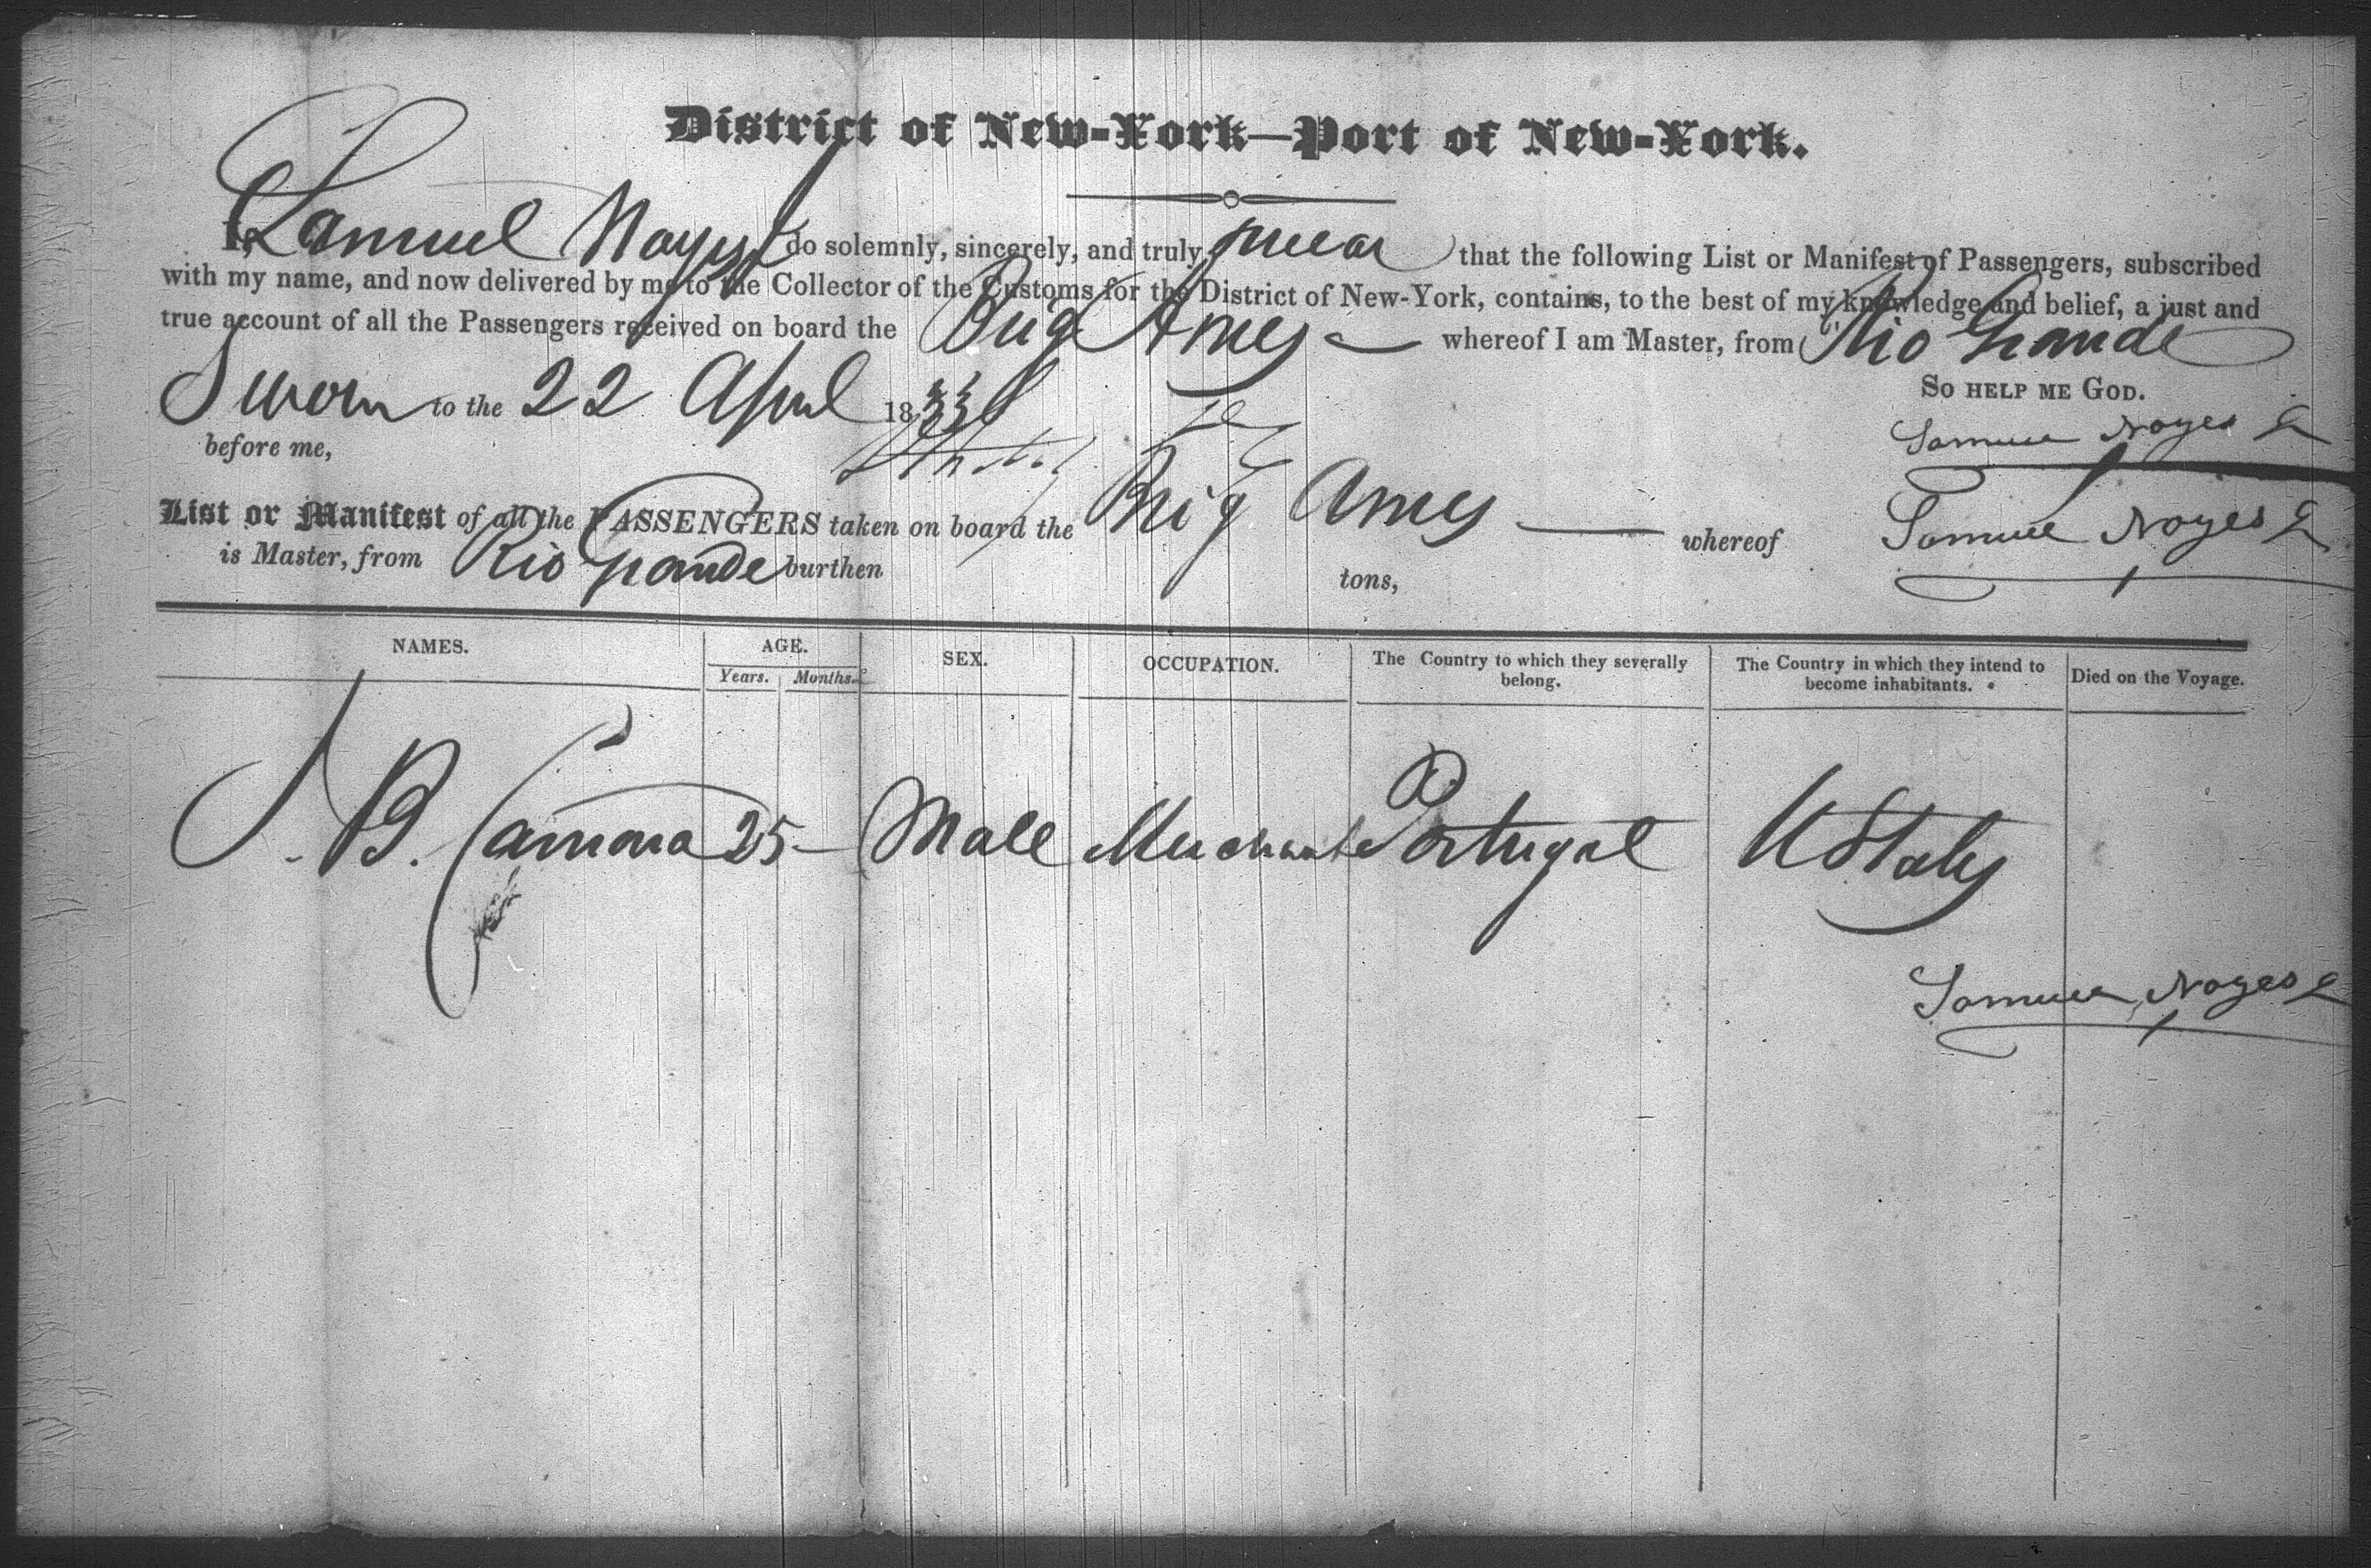 District of New-York—Port of New-York.
I, Samuel Noyes Jr do solemnly, sincerely, and truly swear that the following List or Manifest of Passengers, subscribed
with my name, and now delivered by me to the Collector of the Customs for the District of New-York, contains, to the best of my knowledge and belief, a just and
true account of all the Passengers received on board the Brig Ames whereof I am Master, from Rio Grande
Sworn to the 22 April 1833 So help me God.
before me, Samuel Noyes Jr
List or Manifest of all the PASSENGERS taken on board the Brig Ames whereof Samuel Noyes Jr
is Master, from Rio Grande burthen tons,
NAMES. AGE. SEX. OCCUPATION. The Country to which they severally belong. The Country in which they intend to become inhabitants. Died on the Voyage.
Years. Months.
J. B. Camora 25 Male Merchant Portugal U States
Samuel Noyes Jr